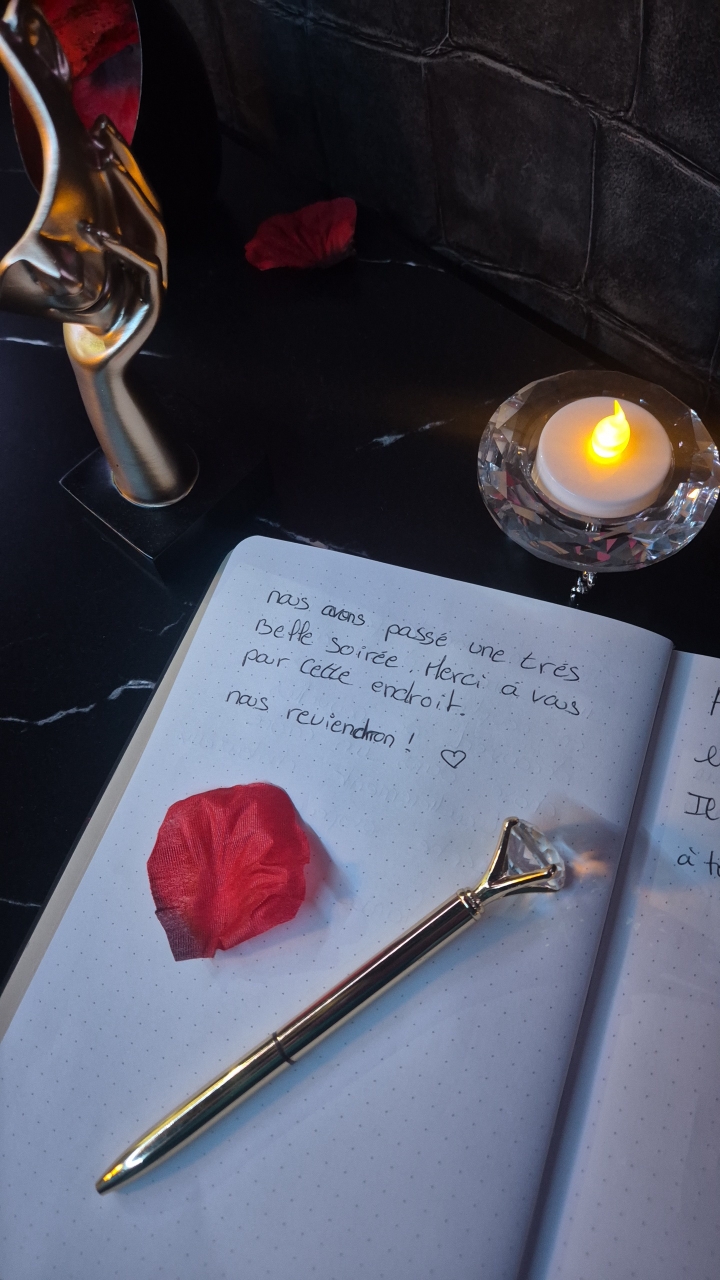 nous avons passé une très
Belle Soirée. Merci à vous
pour cette endroit.
nous reviendron ! ♡
Il
à